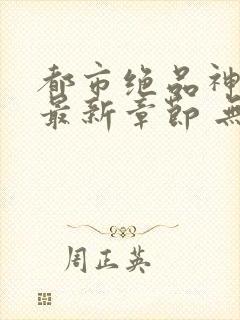 都市绝品神
最新章節 無
周正英